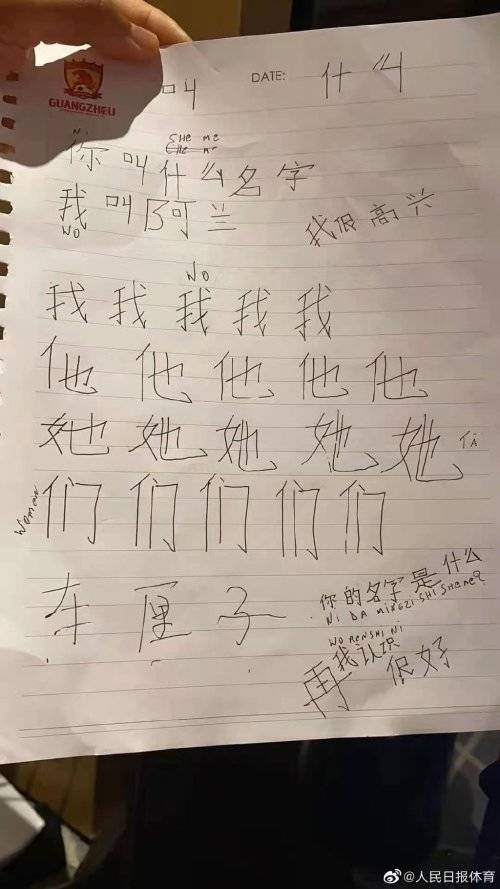 GUANGZHOU
叫 DATE: 什么
SHE ME
你叫什么名字
我叫阿兰
WO
我很高兴
WO
我 我 我 我 我
他 他 他 他 他
她 她 她 她 她 TA
women 们 们 们 们 们
车 厘 子
你的名字是什么
NI DA MINGZI SHI SHEME?
WO RENSHI NI
我认识
再 很好
@人民日报体育